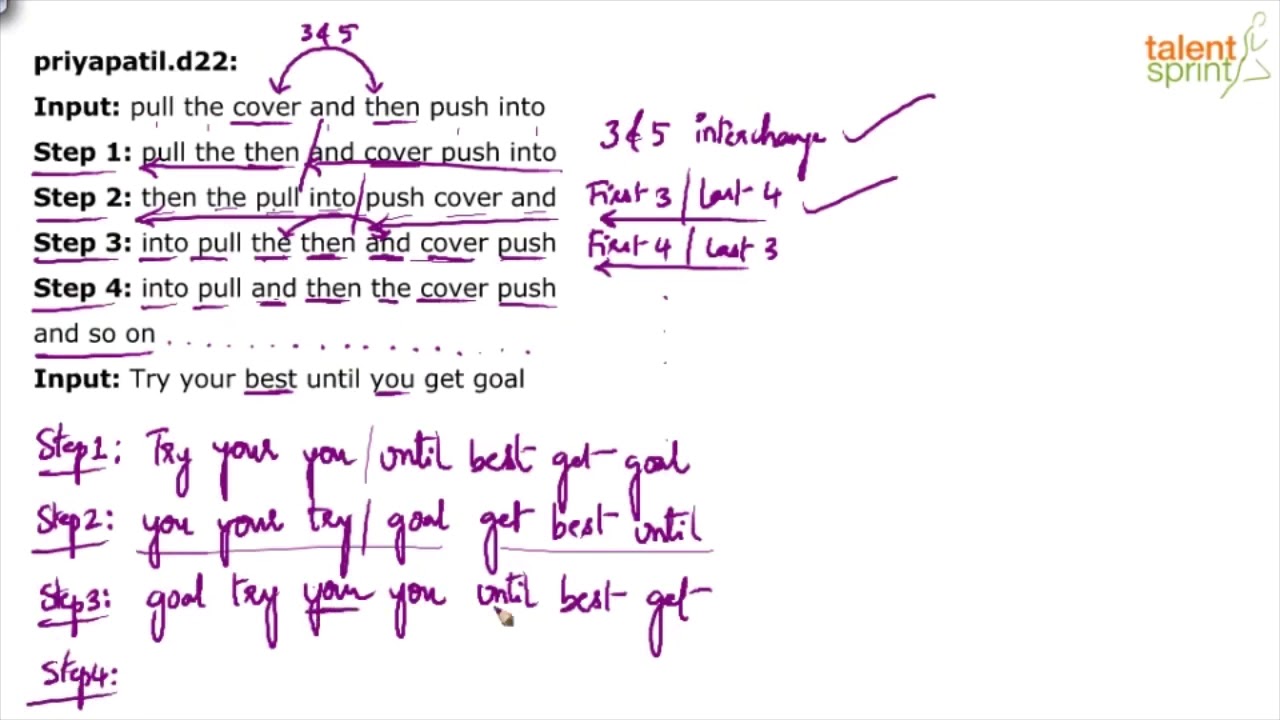 talent
sprint
3 & 5
priyapatil.d22:
Input: pull the cover and then push into
3 & 5 interchange
Step 1: pull the then and cover push into
First 3 / Last 4
Step 2: then the pull into push cover and
First 4 / Last 3
Step 3: into pull the then and cover push
Step 4: into pull and then the cover push
and so on . . . . . . . . . . . . . .
Input: Try your best until you get goal
Step1: Try your you / until best get goal
Step2: you your try / goal get best until
Step3: goal try your you until best get
Step4: